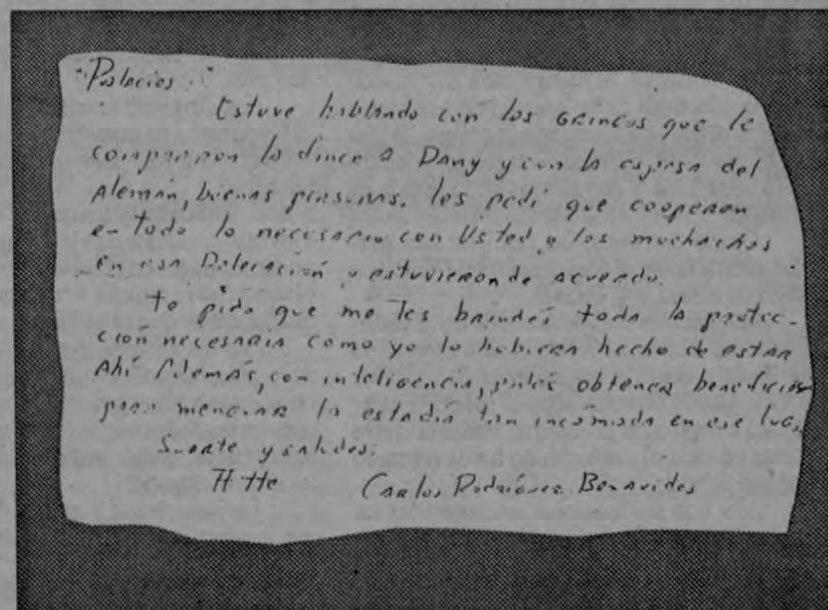 "Palacios."
Estuve hablando con los GRINGOS que le
compraron la finca a Dany y con la esposa del
Alemán, buenas personas. les pedí que cooperan
en todo lo necesario con Usted y los muchachos
en esa Delegación y estuvieron de acuerdo.
Te pido que me les brindes toda la protec-
ción necesaria como yo lo hubiera hecho de estar
Ahí Además, con inteligencia, puedes obtener beneficios
para menguar la estadía tan incómoda en ese lugar
Suerte y saludos:
Carlos Rodríguez Benavides